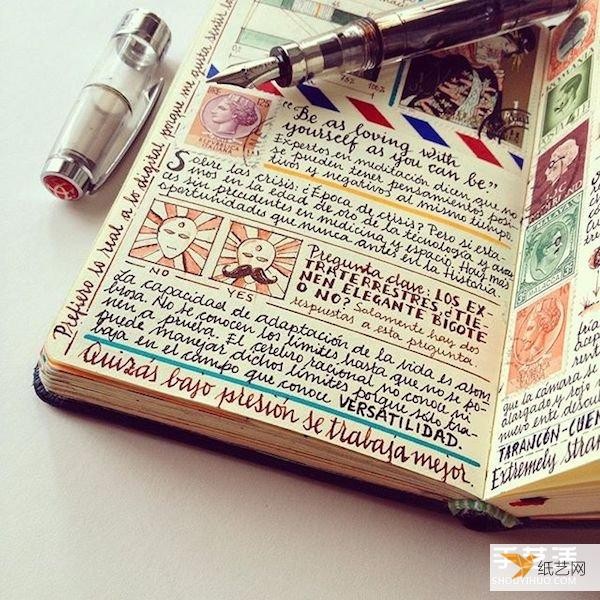 Prefiero lo real a lo digital porque me gusta sentir la
"Be as loving with
yourself as you can be."
Expertos en meditación dicen que no
se pueden tener pensamientos posi-
tivos y negativos al mismo tiempo.
Sobre las crisis: ¿Época de crisis? Pero si esta-
mos en la edad de oro de la tecnología y avan-
ces sin precedentes en medicina y espacio. Hay más
oportunidades que nunca antes en la historia.
NO YES
Pregunta clave: LOS EX-
TRATERRESTRES ¿TIE-
NEN ELEGANTE BIGOTE
O NO? Solamente hay dos
respuestas a esta pregunta.
La capacidad de adaptación de la vida es asom
brosa. No se conocen los límites hasta que no se po-
nen a prueba. El cerebro racional no conoce ni
puede manejar dichos límites porque sólo tra-
baja en el campo que conoce VERSATILIDAD.
Quizás bajo presión se trabaja mejor.
que la cámara se
alargado y rojo
nuevo ente descu
TARANCÓN-CUEN
Extremely Stran
ROMANA
纸艺网
SHOUYIHUO.COM